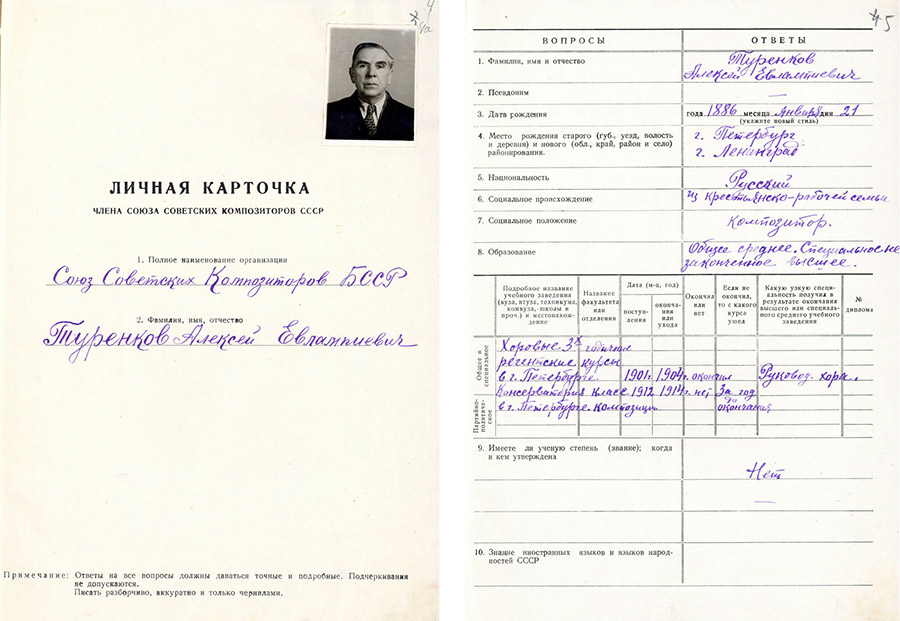 4
4а
ЛИЧНАЯ КАРТОЧКА
ЧЛЕНА СОЮЗА СОВЕТСКИХ КОМПОЗИТОРОВ СССР
1. Полное наименование организации
Союз Советских Композиторов БССР
2. Фамилия, имя, отчество
Туренков Алексей Евлампиевич
Примечание: Ответы на все вопросы должны даваться точные и подробные. Подчеркивания
не допускаются.
Писать разборчиво, аккуратно и только чернилами.
5
ВОПРОСЫ ОТВЕТЫ
1. Фамилия, имя и отчество
Туренков
Алексей Евлампиевич
2. Псевдоним —
3. Дата рождения года 1886 месяца Января дня 21
(укажите новый стиль)
4. Место рождения старого (губ., уезд, волость
и деревня) и нового (обл., край, район и село)
районирования.
г. Петербург
г. Ленинград
5. Национальность Русский
6. Социальное происхождение из крестьянско-рабочей семьи
7. Социальное положение композитор.
8. Образование Общее среднее. Специальное не
законченное высшее.
Подробное название
учебного заведения
(вуза, втуза, техникума,
комвуза, школы и
проч.) и местонахож-
дение
Название
факультета
или
отделения
Дата (м-ц, год)
поступ-
ления
оконча-
ния
или
ухода
Окончил
или
нет
Если не
окончил,
то с какого
курса
ушел
Какую узкую специ-
альность получил в
результате окончания
высшего или специаль-
ного среднего учебного
заведения
№
диплома
Общее и
специальное
Хоровые 3х годичные
регентские курсы
в г. Петербурге. 1901г. 1904г. окончил Руковод. хора.
Консерватория классе 1912 1914г. нет За год
в г. Петербурге. композиции до окончания
Партийно-
политиче-
ское
9. Имеете ли ученую степень (звание); когда
и кем утверждена
Нет
—
10. Знание иностранных языков и языков народ-
ностей СССР